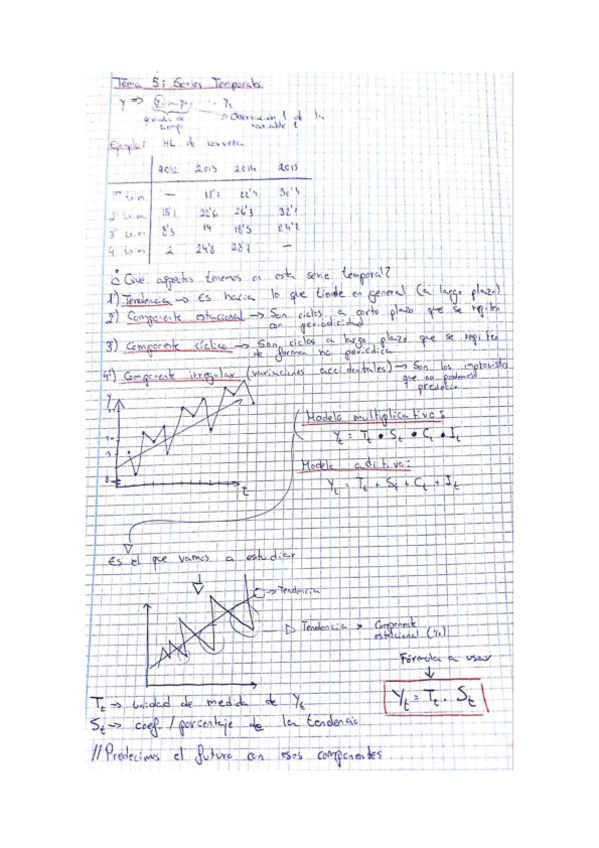 Tema 5: Series Temporales
y ⇒ y₁ ... yₜ
Observación 1 de la
variable 1
Ejemplo: HL de cerveza
2012 2013 2014 2015
1er trim — 22'4
2º trim 15'1 22'6 26'3 32'1
3er trim 8'5 14 18'5 24'2
4 trim 2 24'8 28'1 —
¿Qué aspectos tenemos en esta serie temporal?
1º) Tendencia → Es hacia lo que tiende en general (a largo plazo)
2º) Componente estacional → Son ciclos a corto plazo que se repiten
con periodicidad
3º) Componente cíclico → Son ciclos a largo plazo que se repiten
de forma no periódica
4º) Componente irregular (variaciones accidentales) → Son los imprevistos
que no podemos
predecir
Y
t
0
Modelo multiplicativo:
Yₜ = Tₜ • Sₜ • Cₜ • Iₜ
Modelo aditivo:
Yₜ = Tₜ + Sₜ + Cₜ + Iₜ
Es el que vamos a estudiar
→ Tendencia
▷ Tendencia x Componente
estacional (%)
Fórmula a usar
Yₜ = Tₜ . Sₜ
Tₜ → unidad de medida de Yₜ
Sₜ → coef. / porcentaje de la tendencia
// Predecimos el futuro con esos componentes